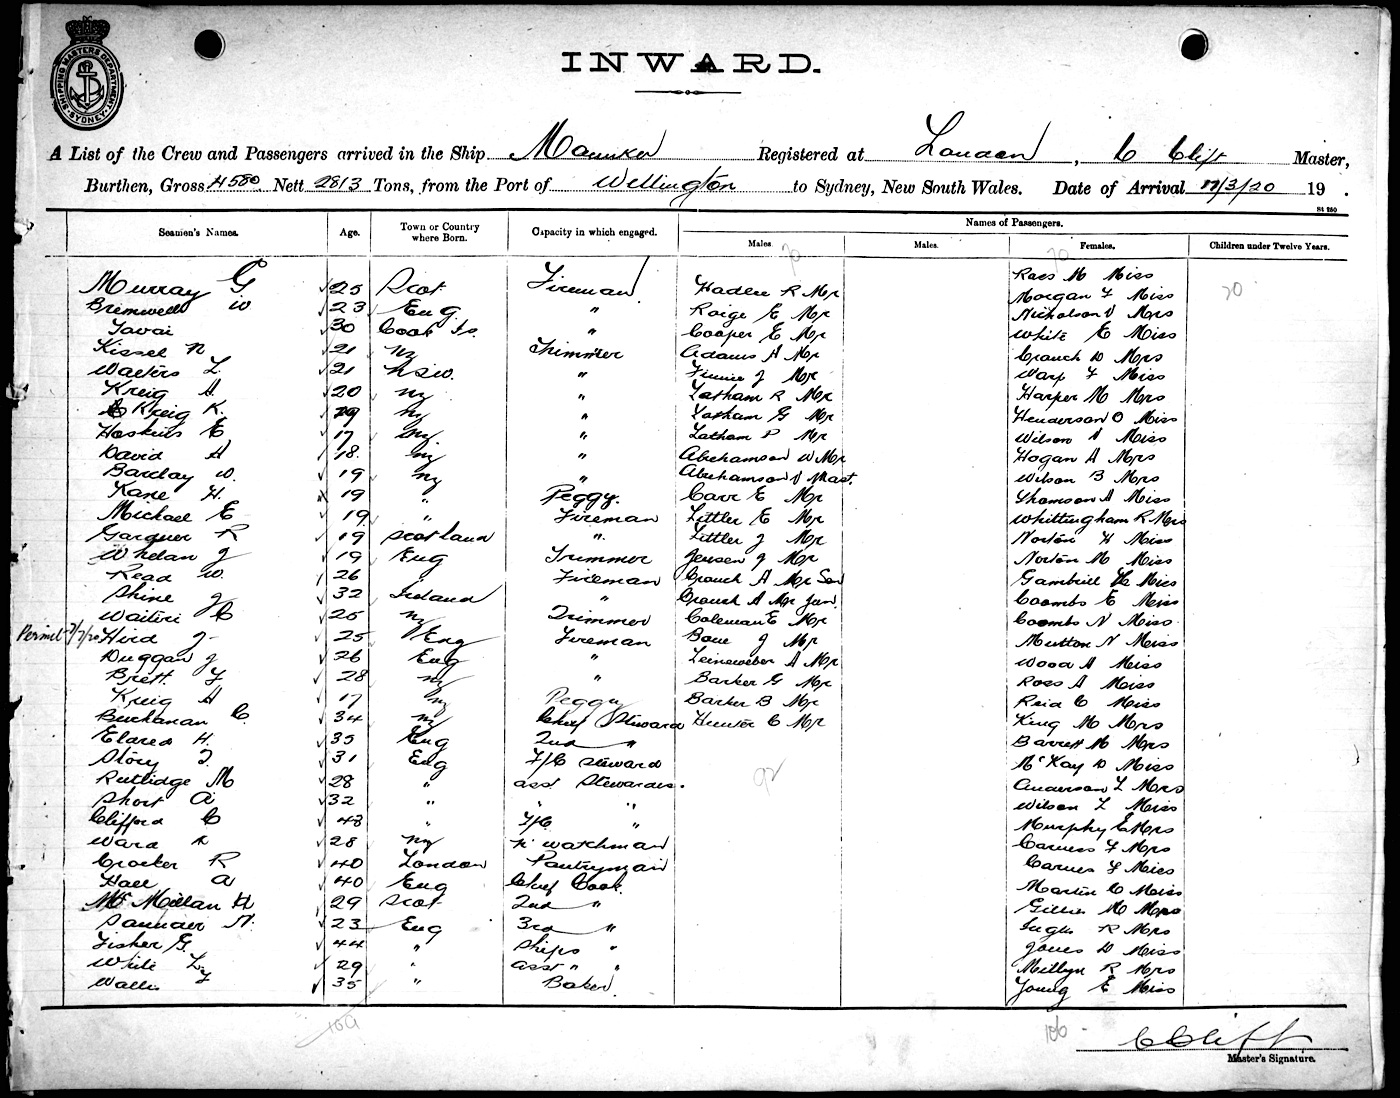 SHIPPING MASTERS DEPARTMENT SYDNEY
INWARD.
A List of the Crew and Passengers arrived in the Ship Manuka Registered at London, C Clift Master,
Burthen, Gross 4580 Nett 2813 Tons, from the Port of Wellington to Sydney, New South Wales. Date of Arrival 17/3/20 19 .
S4 250
Seamen's Names. Age. Town or Country where Born. Capacity in which engaged. Names of Passengers.
Males. Males. Females. Children under Twelve Years.
70 70 20
Murray G 25 Scot Fireman Hadlee R Mr Ross M Miss
Bremwell W 23 Eng " Paige E Mr Morgan F Miss
Tavai 30 Cook Is. " Cooper E Mr Nicholson V Mrs
Kissel N 21 NZ Trimmer Adams A Mr White E Miss
Walters L 21 NSW. " Finnie J Mr Crouch D Mrs
Kreig A 20 NZ " Latham R Mr Warp F Miss
Kreig K. 19 NZ " Latham G Mr Harper M Mrs
Hoskins E 17 NZ " Latham P Mr Henderson O Miss
David A 18 NZ " Abrahamson W Mr Wilson A Miss
Barclay W. 19 NZ " Abrahamson V Mast. Hogan A Mrs
Kane H. 19 " Peggy. Carr E Mr Wilson B Mrs
Michael E 19 " Fireman Littler E Mr Thomson A Miss
Gardner R 19 Scotland " Littler J Mr Whittingham R Mrs
Whelan J 19 Eng Trimmer Jensen J Mr Norton H Miss
Read W. 26 Fireman Crouch A Mr Sen Norton M Miss
Shine J 32 Ireland " Crouch A Mr Jun. Gambrill Miss
Waitiri C 25 NZ Trimmer Coleman E Mr Coombs E Miss
Permit 7/7/20 Hird J 25 Eng Fireman Bone J Mr Coombs N Miss
Duggan J 26 Eng " Leineweber A Mr Mutton N Miss
Brett F 28 NZ " Barker G Mr Wood A Miss
Kreig A 17 NZ Peggy Barker B Mr Ross A Miss
Buchanan C. 34 NZ Chief Steward Hunter C Mr Reid C Miss
Eldred H. 35 Eng 2nd " King M Mrs
Story J. 31 Eng F/C Steward Barrett M Mrs
Rutlidge M 28 " asst Stewardess. McKay D Miss
Short A 32 " " " Anderson L Mrs
Clifford C 43 " F/C " Wilson L Miss
Ward 28 NZ N watchman Murphy E Mrs
Crocker R 40 London Pantryman Carness F Mrs
Hall A 40 Eng Chief Cook. Carnes F Miss
McMillan H 29 Scot 2nd " Martin C Miss
Saunder N. 23 Eng 3rd " Gillies M Mrs
Fisher G. 44 " Ships " Inglis R Mrs
White Ly 29 " asst " " Jones D Miss
Wallis 35 " Baker Mitlyn R Mrs
Young E Miss
92
109
106
C Clift
Master's Signature.